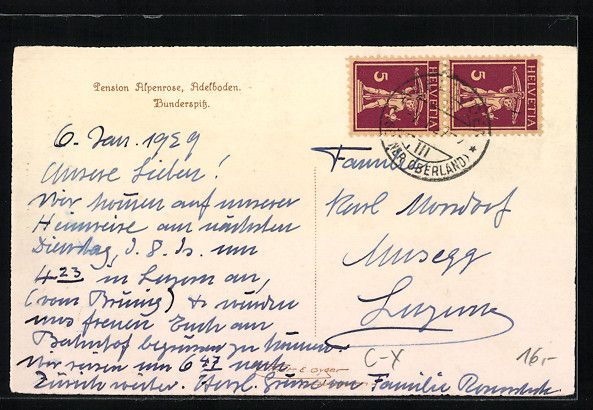 Pension Alpenrose, Adelboden.
Bunderspitz.
6. Jan. 1929
Unsere Lieben!
Wir kommen auf unserer
Heimreise am nächsten
Dienstag, d. 8. Js. um
4 23 in Luzern an,
(vom Brünig) & würden
uns freuen Euch am
Bahnhof begrüssen zu können.
Wir reisen um 6 47 nach
Zürich weiter. Herzl. Grüsse von Familie
5 HELVETIA
5 HELVETIA
(BERNER OBERLAND)
Familie
Karl
Musegg
Luzern
C-X
16,-